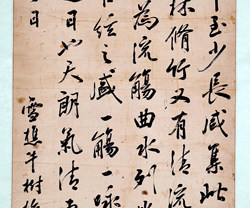 畢至少長咸集此
林脩竹又有清流
為流觴曲水列坐
絃之盛一觴一詠
是日也天朗氣清
雪樵牛樹梅